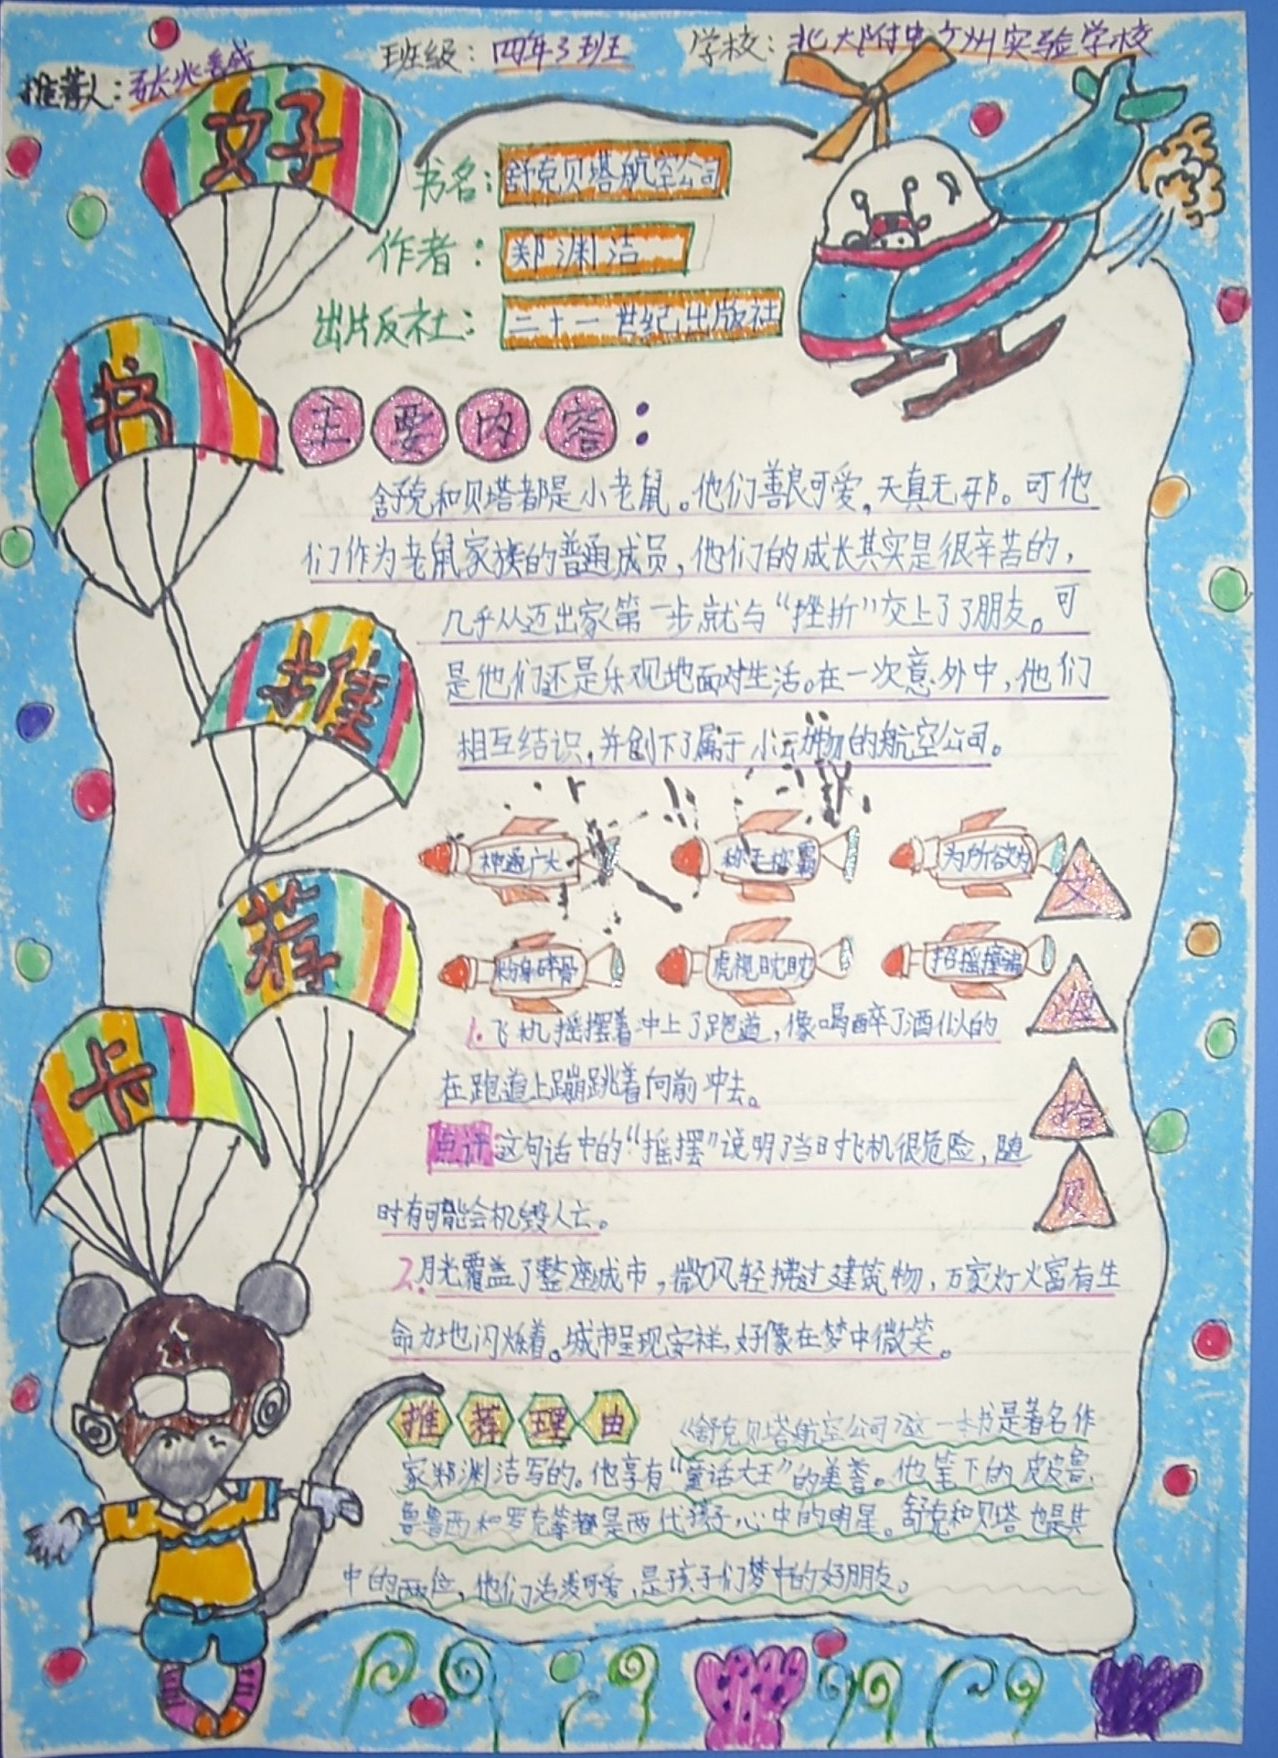 推荐人：张兆
班级：四年3班
学校：北大附中广州实验学校
好书推荐卡
书名：舒克贝塔航空公司
作者：郑渊洁
出片反社：二十一世纪出版社
主要内容：
舒克和贝塔都是小老鼠。他们善良可爱，天真无邪。可他
们作为老鼠家族的普通成员，他们的成长其实是很辛苦的，
几乎从迈出家第一步就与“挫折”交上了朋友。可
是他们还是乐观地面对生活。在一次意外中，他们
相互结识，并创下了属于小动物的航空公司。
神通广大 称王称霸 为所欲为
粉身碎骨 虎视眈眈 招摇撞骗
文海拾贝
1.飞机摇摆着冲上了跑道，像喝醉了酒似的
在跑道上蹦跳着向前冲去。
点评 这句话中的“摇摆”说明了当时飞机很危险，随
时有可能会机毁人亡。
2.月光覆盖了整座城市，微风轻拂过建筑物，万家灯火富有生
命力地闪烁着。城市呈现安祥，好像在梦中微笑。
推荐理由
《舒克贝塔航空公司》这一本书是著名作
家郑渊洁写的。他享有“童话大王”的美誉。他笔下的皮皮鲁、
鲁鲁西和罗克等都是两代孩子心中的明星。舒克和贝塔也是其
中的两位，他们活泼可爱，是孩子们梦中的好朋友。